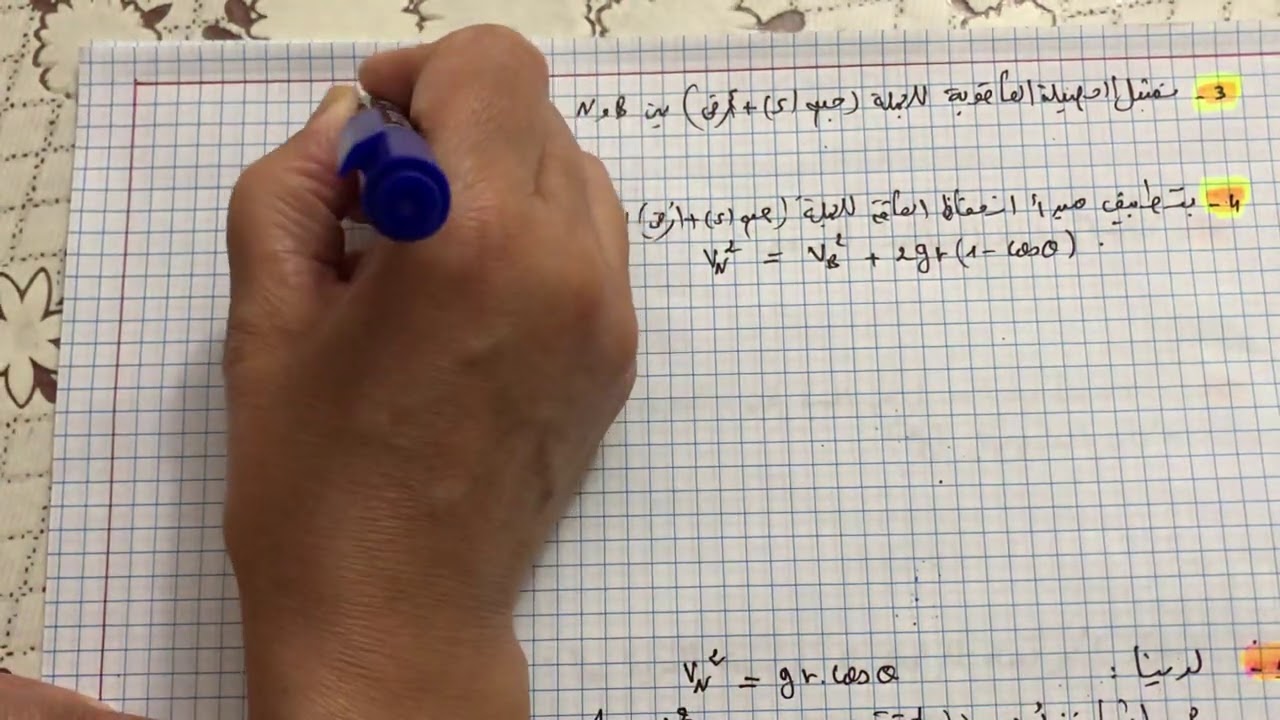 3 - نمثل الحصيلة الطاقوية للجملة (جسم (S) + أرض) بين B و N
4 - بتطبيق مبدأ انحفاظ الطاقة للجملة (جسم (S) + أرض)
V_N² = V_B² + 2gr(1 - cosθ)
لدينا :
V_N² = gr.cosθ